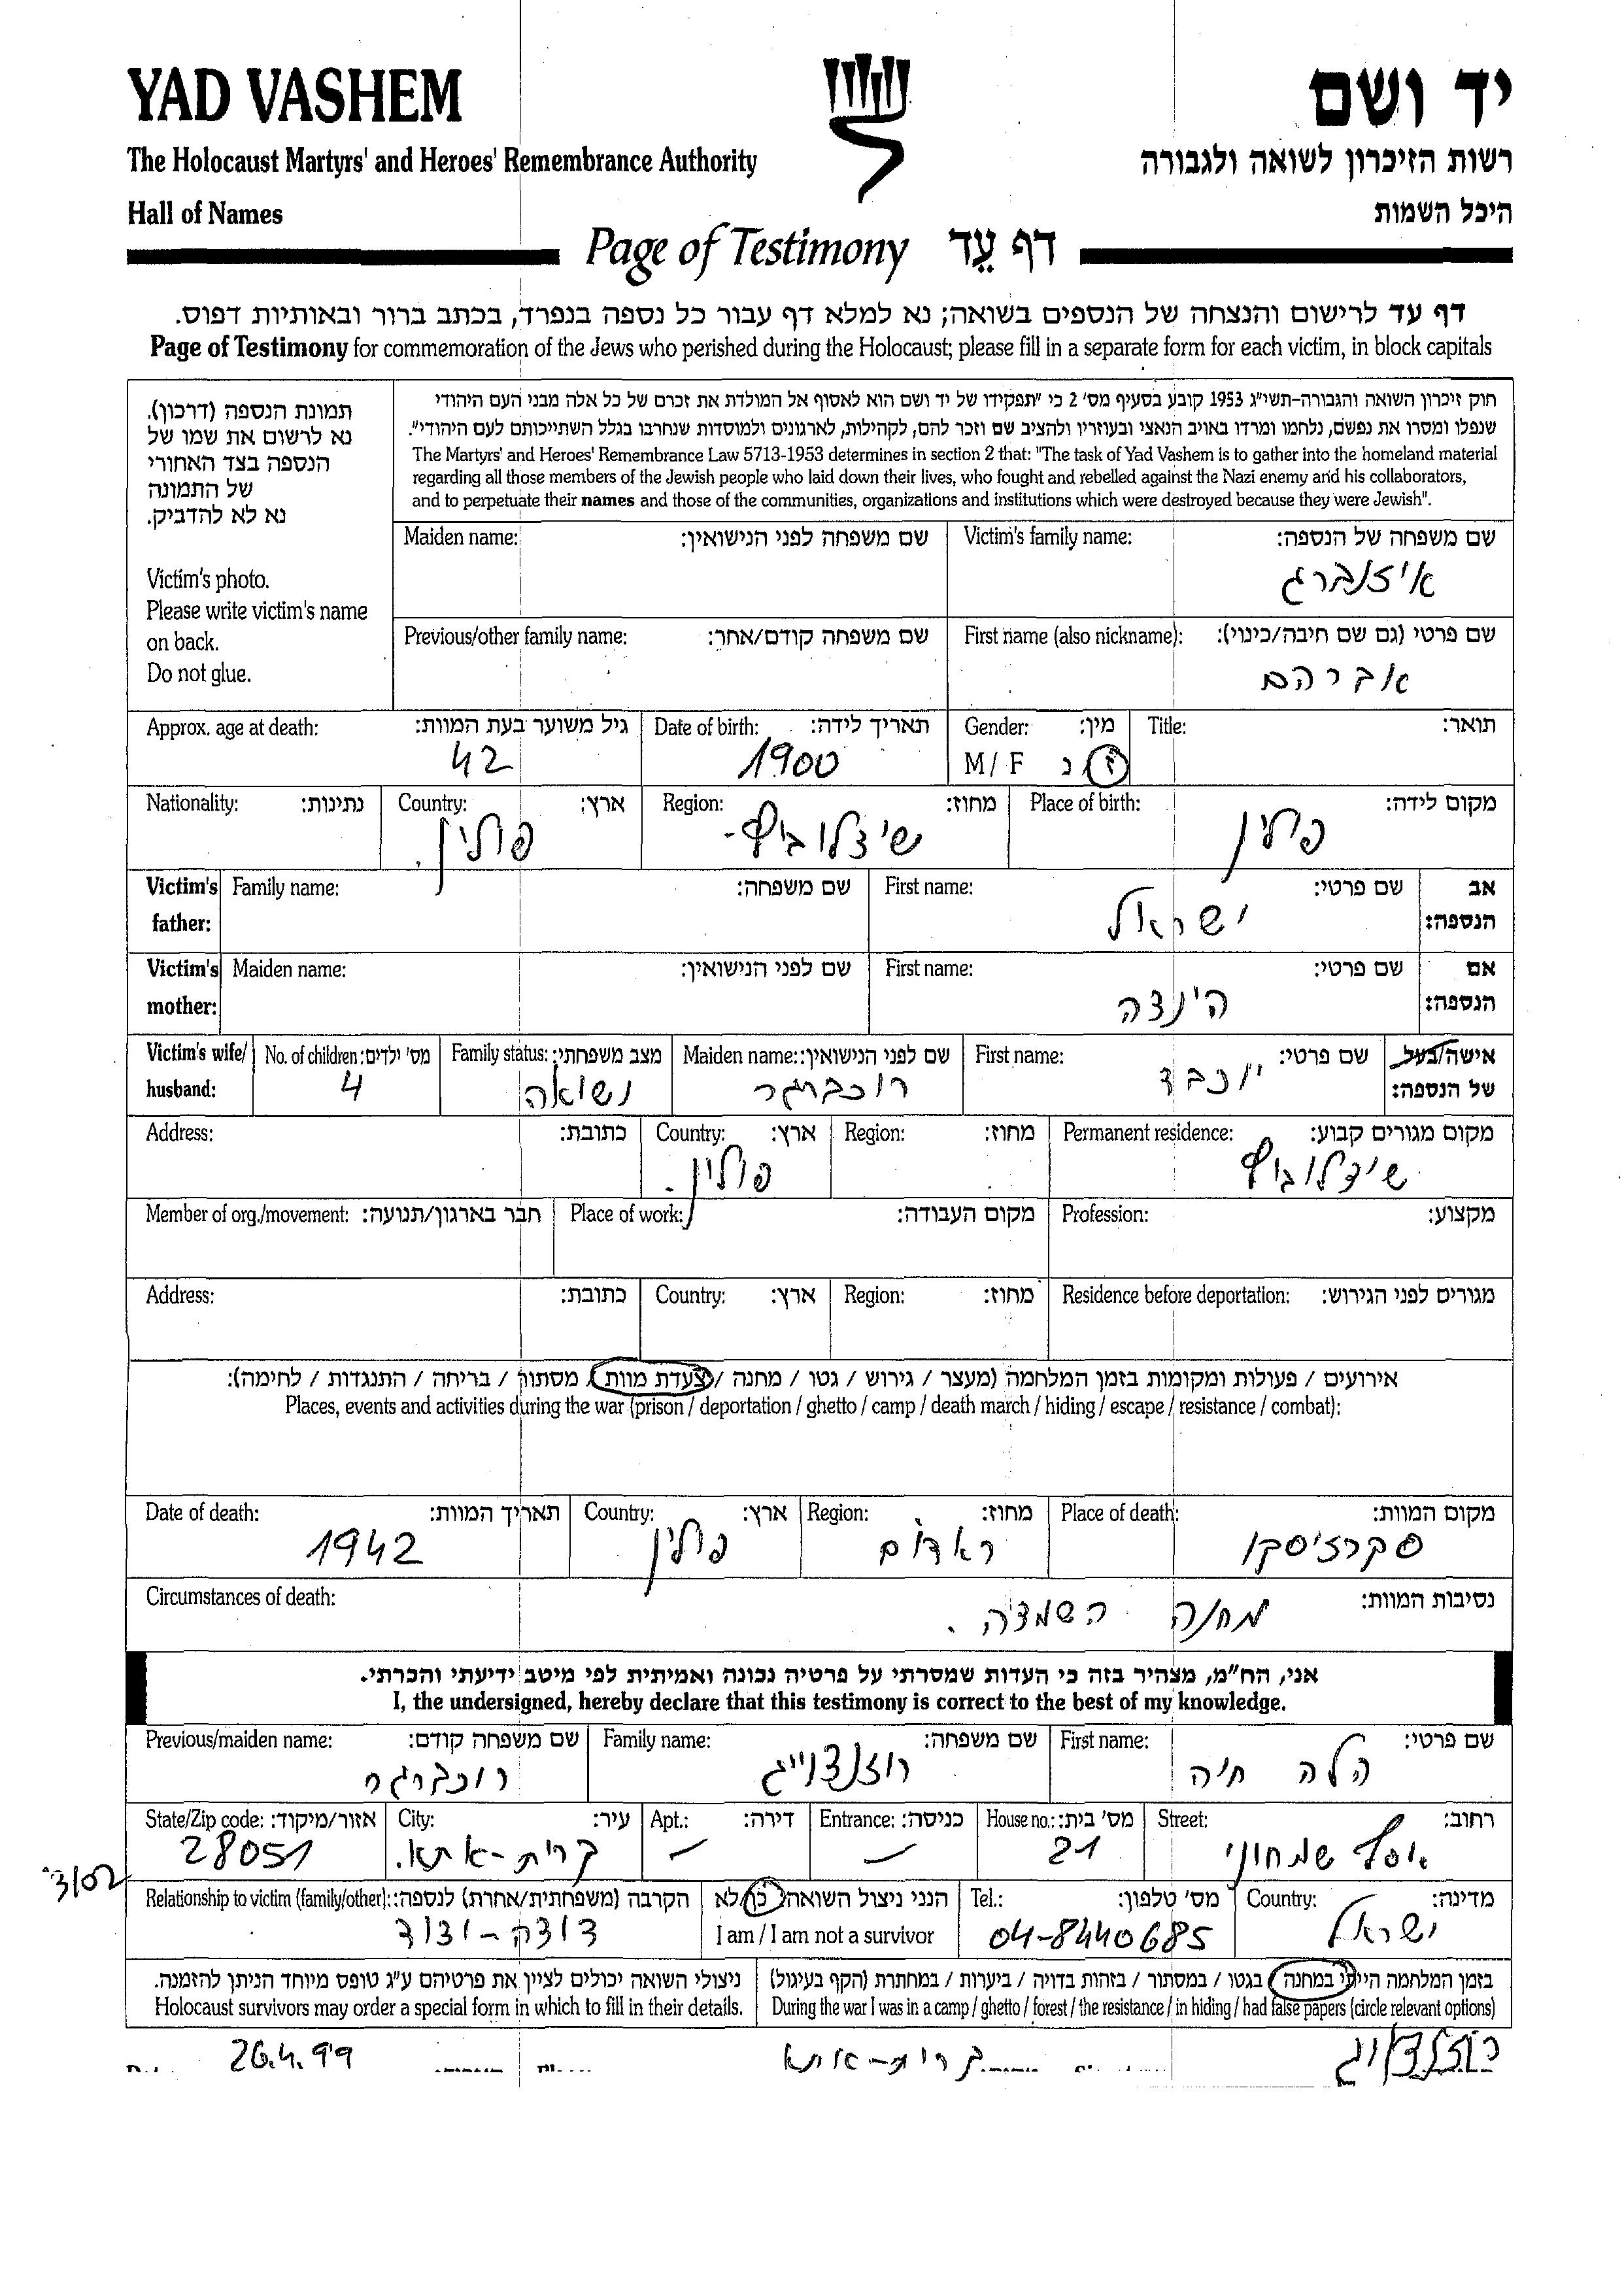 YAD VASHEM
יד ושם
The Holocaust Martyrs' and Heroes' Remembrance Authority
רשות הזיכרון לשואה ולגבורה
Hall of Names
היכל השמות
Page of Testimony דף עֵד
דף עד לרישום והנצחה של הנספים בשואה; נא למלא דף עבור כל נספה בנפרד, בכתב ברור ובאותיות דפוס.
Page of Testimony for commemoration of the Jews who perished during the Holocaust; please fill in a separate form for each victim, in block capitals
תמונת הנספה (דרכון).
נא לרשום את שמו של
הנספה בצד האחורי
של התמונה
נא לא להדביק.
Victim's photo.
Please write victim's name
on back.
Do not glue.
חוק זיכרון השואה והגבורה-תשי"ג 1953 קובע בסעיף מס' 2 כי "תפקידו של יד ושם הוא לאסוף אל המולדת את זכרם של כל אלה מבני העם היהודי
שנפלו ומסרו את נפשם, נלחמו ומרדו באויב הנאצי ובעוזריו ולהציב שם וזכר להם, לקהילות, לארגונים ולמוסדות שנחרבו בגלל השתייכותם לעם היהודי".
The Martyrs' and Heroes' Remembrance Law 5713-1953 determines in section 2 that: "The task of Yad Vashem is to gather into the homeland material
regarding all those members of the Jewish people who laid down their lives, who fought and rebelled against the Nazi enemy and his collaborators,
and to perpetuate their names and those of the communities, organizations and institutions which were destroyed because they were Jewish".
Victim's family name: שם משפחה של הנספה:
איזנברג
Maiden name: שם משפחה לפני הנישואין:
First name (also nickname): שם פרטי (גם שם חיבה/כינוי):
אברהם
Previous/other family name: שם משפחה קודם/אחר:
Title: תואר:
Gender: מין:
M / F ז / נ
Date of birth: תאריך לידה:
1900
Approx. age at death: גיל משוער בעת המוות:
42
Place of birth: מקום לידה:
פולין
Region: מחוז:
שידלוביץ
Country: ארץ:
פולין.
Nationality: נתינות:
Victim's father: אב הנספה:
First name: שם פרטי:
ישראל
Family name: שם משפחה:
Victim's mother: אם הנספה:
First name: שם פרטי:
הינדה
Maiden name: שם לפני הנישואין:
Victim's wife/ husband: אישה/בעל של הנספה:
First name: שם פרטי:
יוכבד
Maiden name: שם לפני הנישואין:
רוכברגר
Family status: מצב משפחתי:
נשואה
No. of children: מס' ילדים:
4
Permanent residence: מקום מגורים קבוע:
שידלוביץ
Region: מחוז:
Country: ארץ:
פולין.
Address: כתובת:
Profession: מקצוע:
Place of work: מקום העבודה:
Member of org./movement: חבר בארגון/תנועה:
Residence before deportation: מגורים לפני הגירוש:
Region: מחוז:
Country: ארץ:
Address: כתובת:
אירועים / פעולות ומקומות בזמן המלחמה (מעצר / גירוש / גטו / מחנה / צעדת מוות / מסתור / בריחה / התנגדות / לחימה):
Places, events and activities during the war (prison / deportation / ghetto / camp / death march / hiding / escape / resistance / combat):
Place of death: מקום המוות:
סקרז'יסקו
Region: מחוז:
ראדום
Country: ארץ:
פולין
Date of death: תאריך המוות:
1942
Circumstances of death: נסיבות המוות:
מחנה השמדה.
אני, הח"מ, מצהיר בזה כי העדות שמסרתי על פרטיה נכונה ואמיתית לפי מיטב ידיעתי והכרתי.
I, the undersigned, hereby declare that this testimony is correct to the best of my knowledge.
First name: שם פרטי:
הלה חיה
Family name: שם משפחה:
רוזנצוייג
Previous/maiden name: שם משפחה קודם:
רוכברגר
Street: רחוב:
אסף שמחוני
House no.: מס' בית:
21
Entrance: כניסה:
—
Apt.: דירה:
—
City: עיר:
קרית-אתא.
State/Zip code: אזור/מיקוד:
28051
3/02
Country: מדינה:
ישראל
Tel.: מס' טלפון:
04-8440685
הנני ניצול השואה: כן/לא
I am / I am not a survivor
Relationship to victim (family/other): הקרבה (משפחתית/אחרת) לנספה:
דודה-ודוד
בזמן המלחמה הייתי במחנה / בגטו / במסתור / בזהות בדויה / ביערות / במחתרת (הקף בעיגול)
During the war I was in a camp / ghetto / forest / the resistance / in hiding / had false papers (circle relevant options)
ניצולי השואה יכולים לציין את פרטיהם ע"ג טופס מיוחד הניתן להזמנה.
Holocaust survivors may order a special form in which to fill in their details.
26.4.99
קרית-אתא